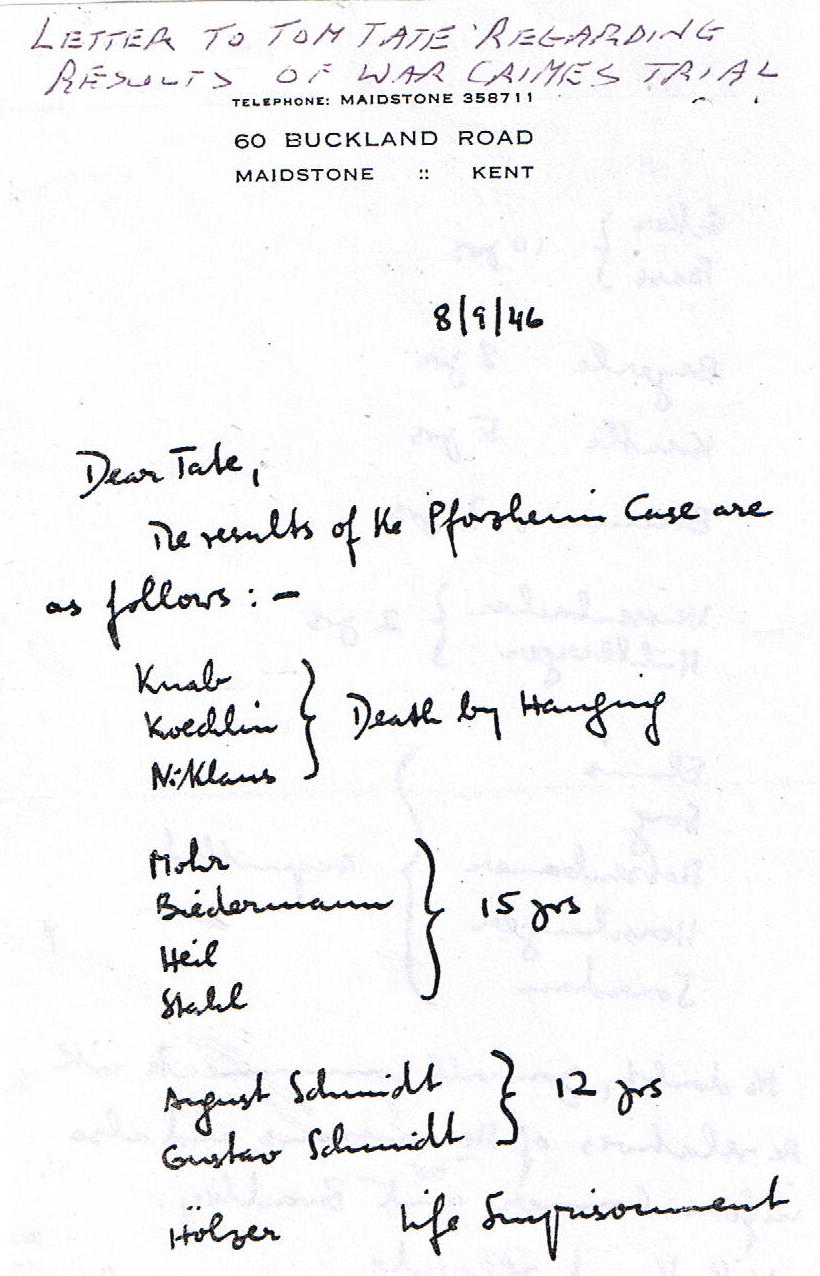 LETTER TO TOM TATE REGARDING
RESULTS OF WAR CRIMES TRIAL
TELEPHONE: MAIDSTONE 358711
60 BUCKLAND ROAD
MAIDSTONE :: KENT
8/9/46
Dear Tate,
The results of the Pforzheim Case are
as follows : -
Knab
Koechlin } Death by Hanging
Niklaus
Mohr
Biedermann } 15 yrs
Heil
Stahl
August Schmidt } 12 yrs
Gustav Schmidt
Hölzer Life Imprisonment